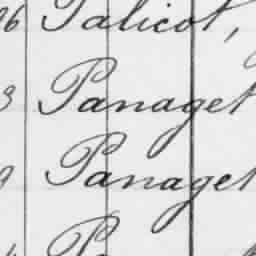 96 Palicot,
3 Panaget
Panaget